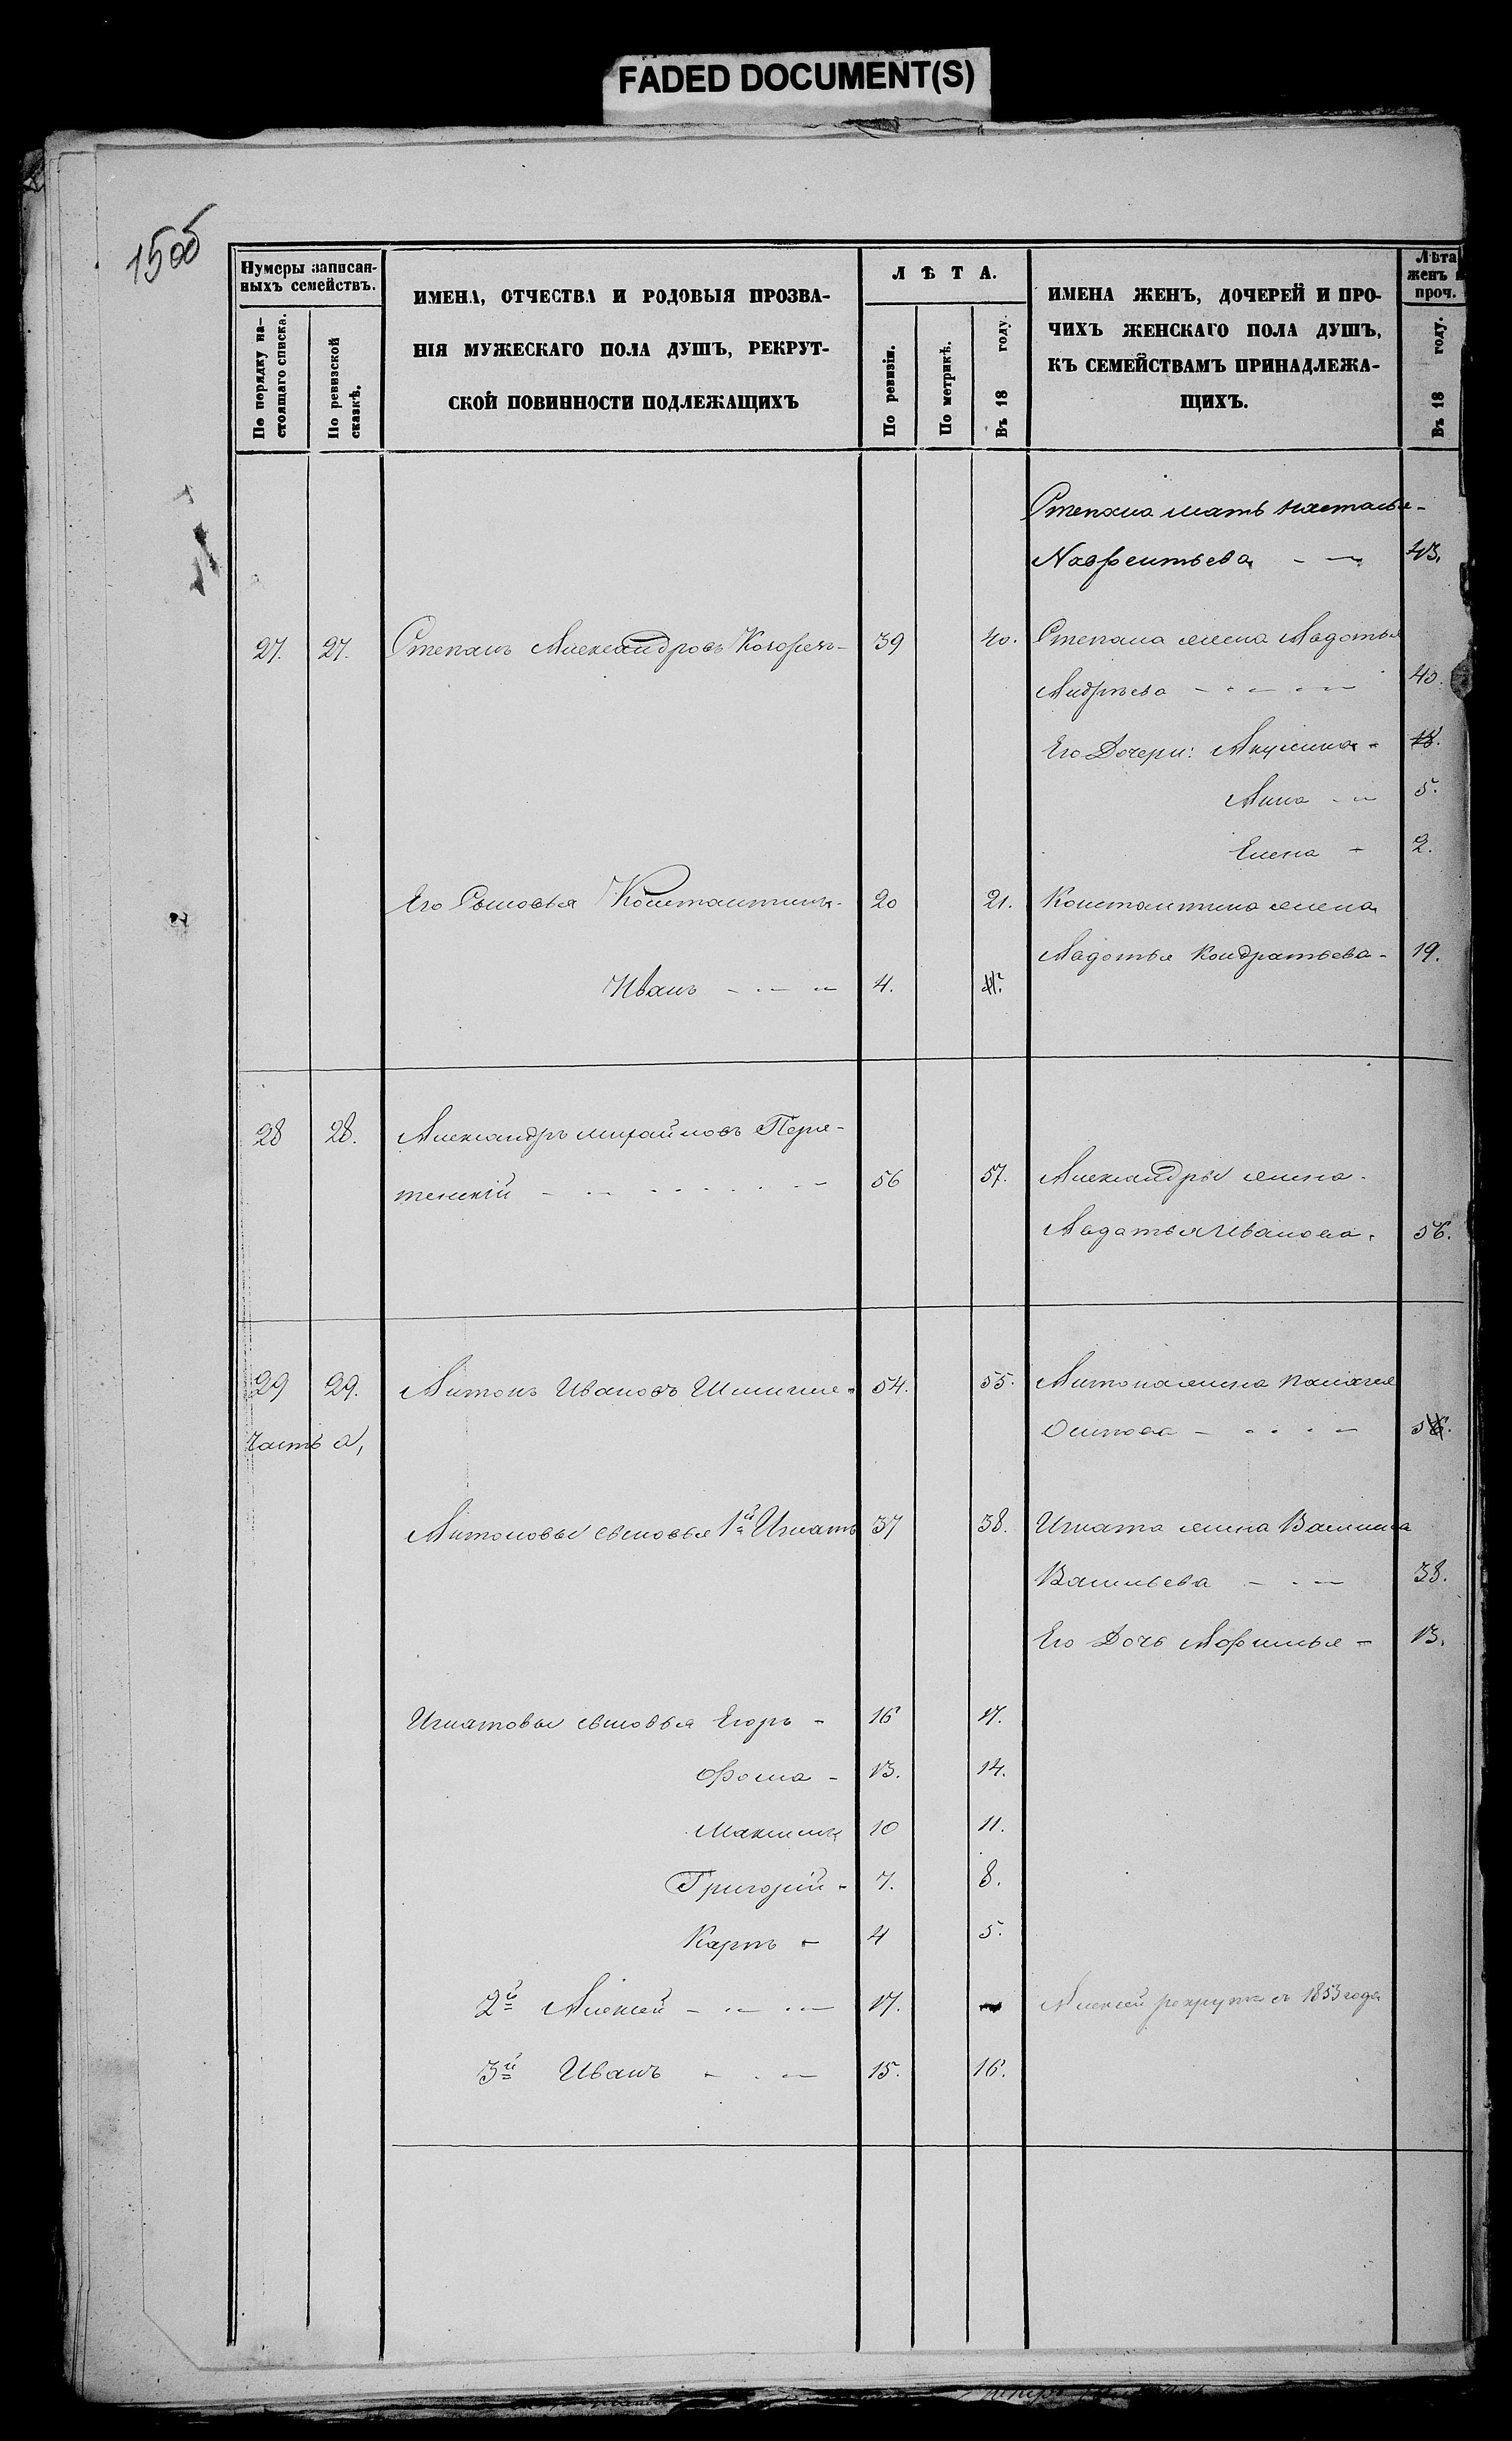 FADED DOCUMENT(S)
15об
Нумеры записан-
ныхъ семействъ.
По порядку на-
стоящаго списка.
По ревизской
сказкѣ.
ИМЕНА, ОТЧЕСТВА И РОДОВЫЯ ПРОЗВА-
НІЯ МУЖЕСКАГО ПОЛА ДУШЪ, РЕКРУТ-
СКОЙ ПОВИННОСТИ ПОДЛЕЖАЩИХЪ
ЛѢТА.
По ревизіи.
По метрикѣ.
Въ 18 году.
ИМЕНА ЖЕНЪ, ДОЧЕРЕЙ И ПРО-
ЧИХЪ ЖЕНСКАГО ПОЛА ДУШЪ,
КЪ СЕМЕЙСТВАМЪ ПРИНАДЛЕЖА-
ЩИХЪ.
Лѣта
женъ и
проч.
Въ 18 году.
Степана мать Настасья
Лаврентьева - - 43.
27. 27. Степанъ Александровъ 39 40. Степана жена Авдотья
Андрѣева - - - - 40.
Его Дочери: Акулина - 18.
Анна - - 5.
Елена - 2.
Его Сыновья Константинъ - 20 21. Константина жена
Авдотья Кондратьева - 19.
Иванъ - - - 4.
28 28. Александръ Михайловъ Пере-
тенскій - - - - - - 56 57. Александры жена
Авдотья Иванова. 56.
29 29. Антонъ Ивановъ 54. 55. Антона жена Палагея
часть а, Осипова - - - -
Антоновы сыновья 1й Игнатъ 37 38. Игната жена Василиса
Васильева - - - 38.
Его Дочь Афимья - 13.
Игнатовы сыновья Егоръ - 16 17.
Фома - 13. 14.
Максимъ 10 11.
Григорій - 7. 8.
Карпъ - 4 5.
2й Алексей - - - 17. Алексей рекрутъ съ 1853 года
3й Иванъ - - - 15. 16.